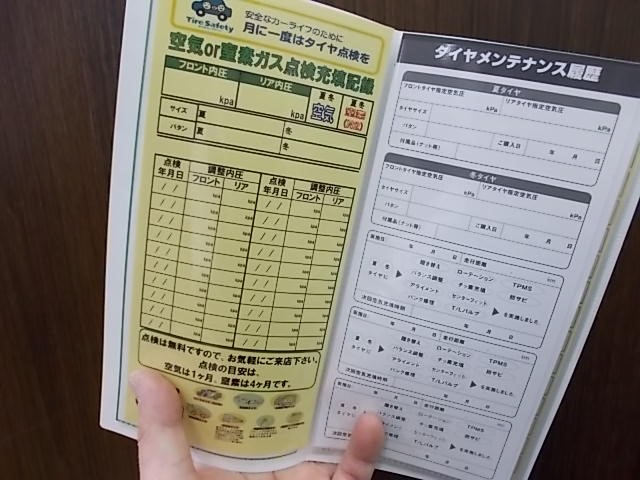 Tire Safety
安全なカーライフのために
月に一度はタイヤ点検を
空気or窒素ガス点検充填記録
フロント内圧 リア内圧 夏 冬
kpa kpa 空気 窒素
サイズ 夏 冬
パタン 夏 冬
点検年月日 調整内圧 点検年月日 調整内圧
フロント リア フロント リア
点検は無料ですので、お気軽にご来店下さい。
点検の目安は、
空気は1ヶ月、窒素は4ヶ月です。
タイヤメンテナンス履歴
夏タイヤ
フロントタイヤ指定空気圧 kPa リアタイヤ指定空気圧 kPa
タイヤサイズ
パタン ご購入日 年 月 日
付属品(ナット等)
冬タイヤ
フロントタイヤ指定空気圧 kPa リアタイヤ指定空気圧 kPa
タイヤサイズ
パタン ご購入日 年 月 日
付属品(ナット等)
実施日: 年 月 日 走行距離 km
夏 冬 タイヤに
履き替え ローテーション TPMS
バランス調整 チッ素充填 防サビ
アライメント センターフィット
パンク修理 T/Lバルブ を実施しました。
次回空気充填時期 年 月 日
実施日: 年 月 日 走行距離 km
夏 冬 タイヤに
履き替え ローテーション TPMS
バランス調整 チッ素充填 防サビ
アライメント センターフィット
パンク修理 T/Lバルブ を実施しました。
次回空気充填時期 年 月 日
実施日: 年 月 日 走行距離 km
履き替え ローテーション TPMS
バランス調整 チッ素充填 防サビ
センターフィット
T/Lバルブ を実施しました。
次回空気充填時期 年 月 日